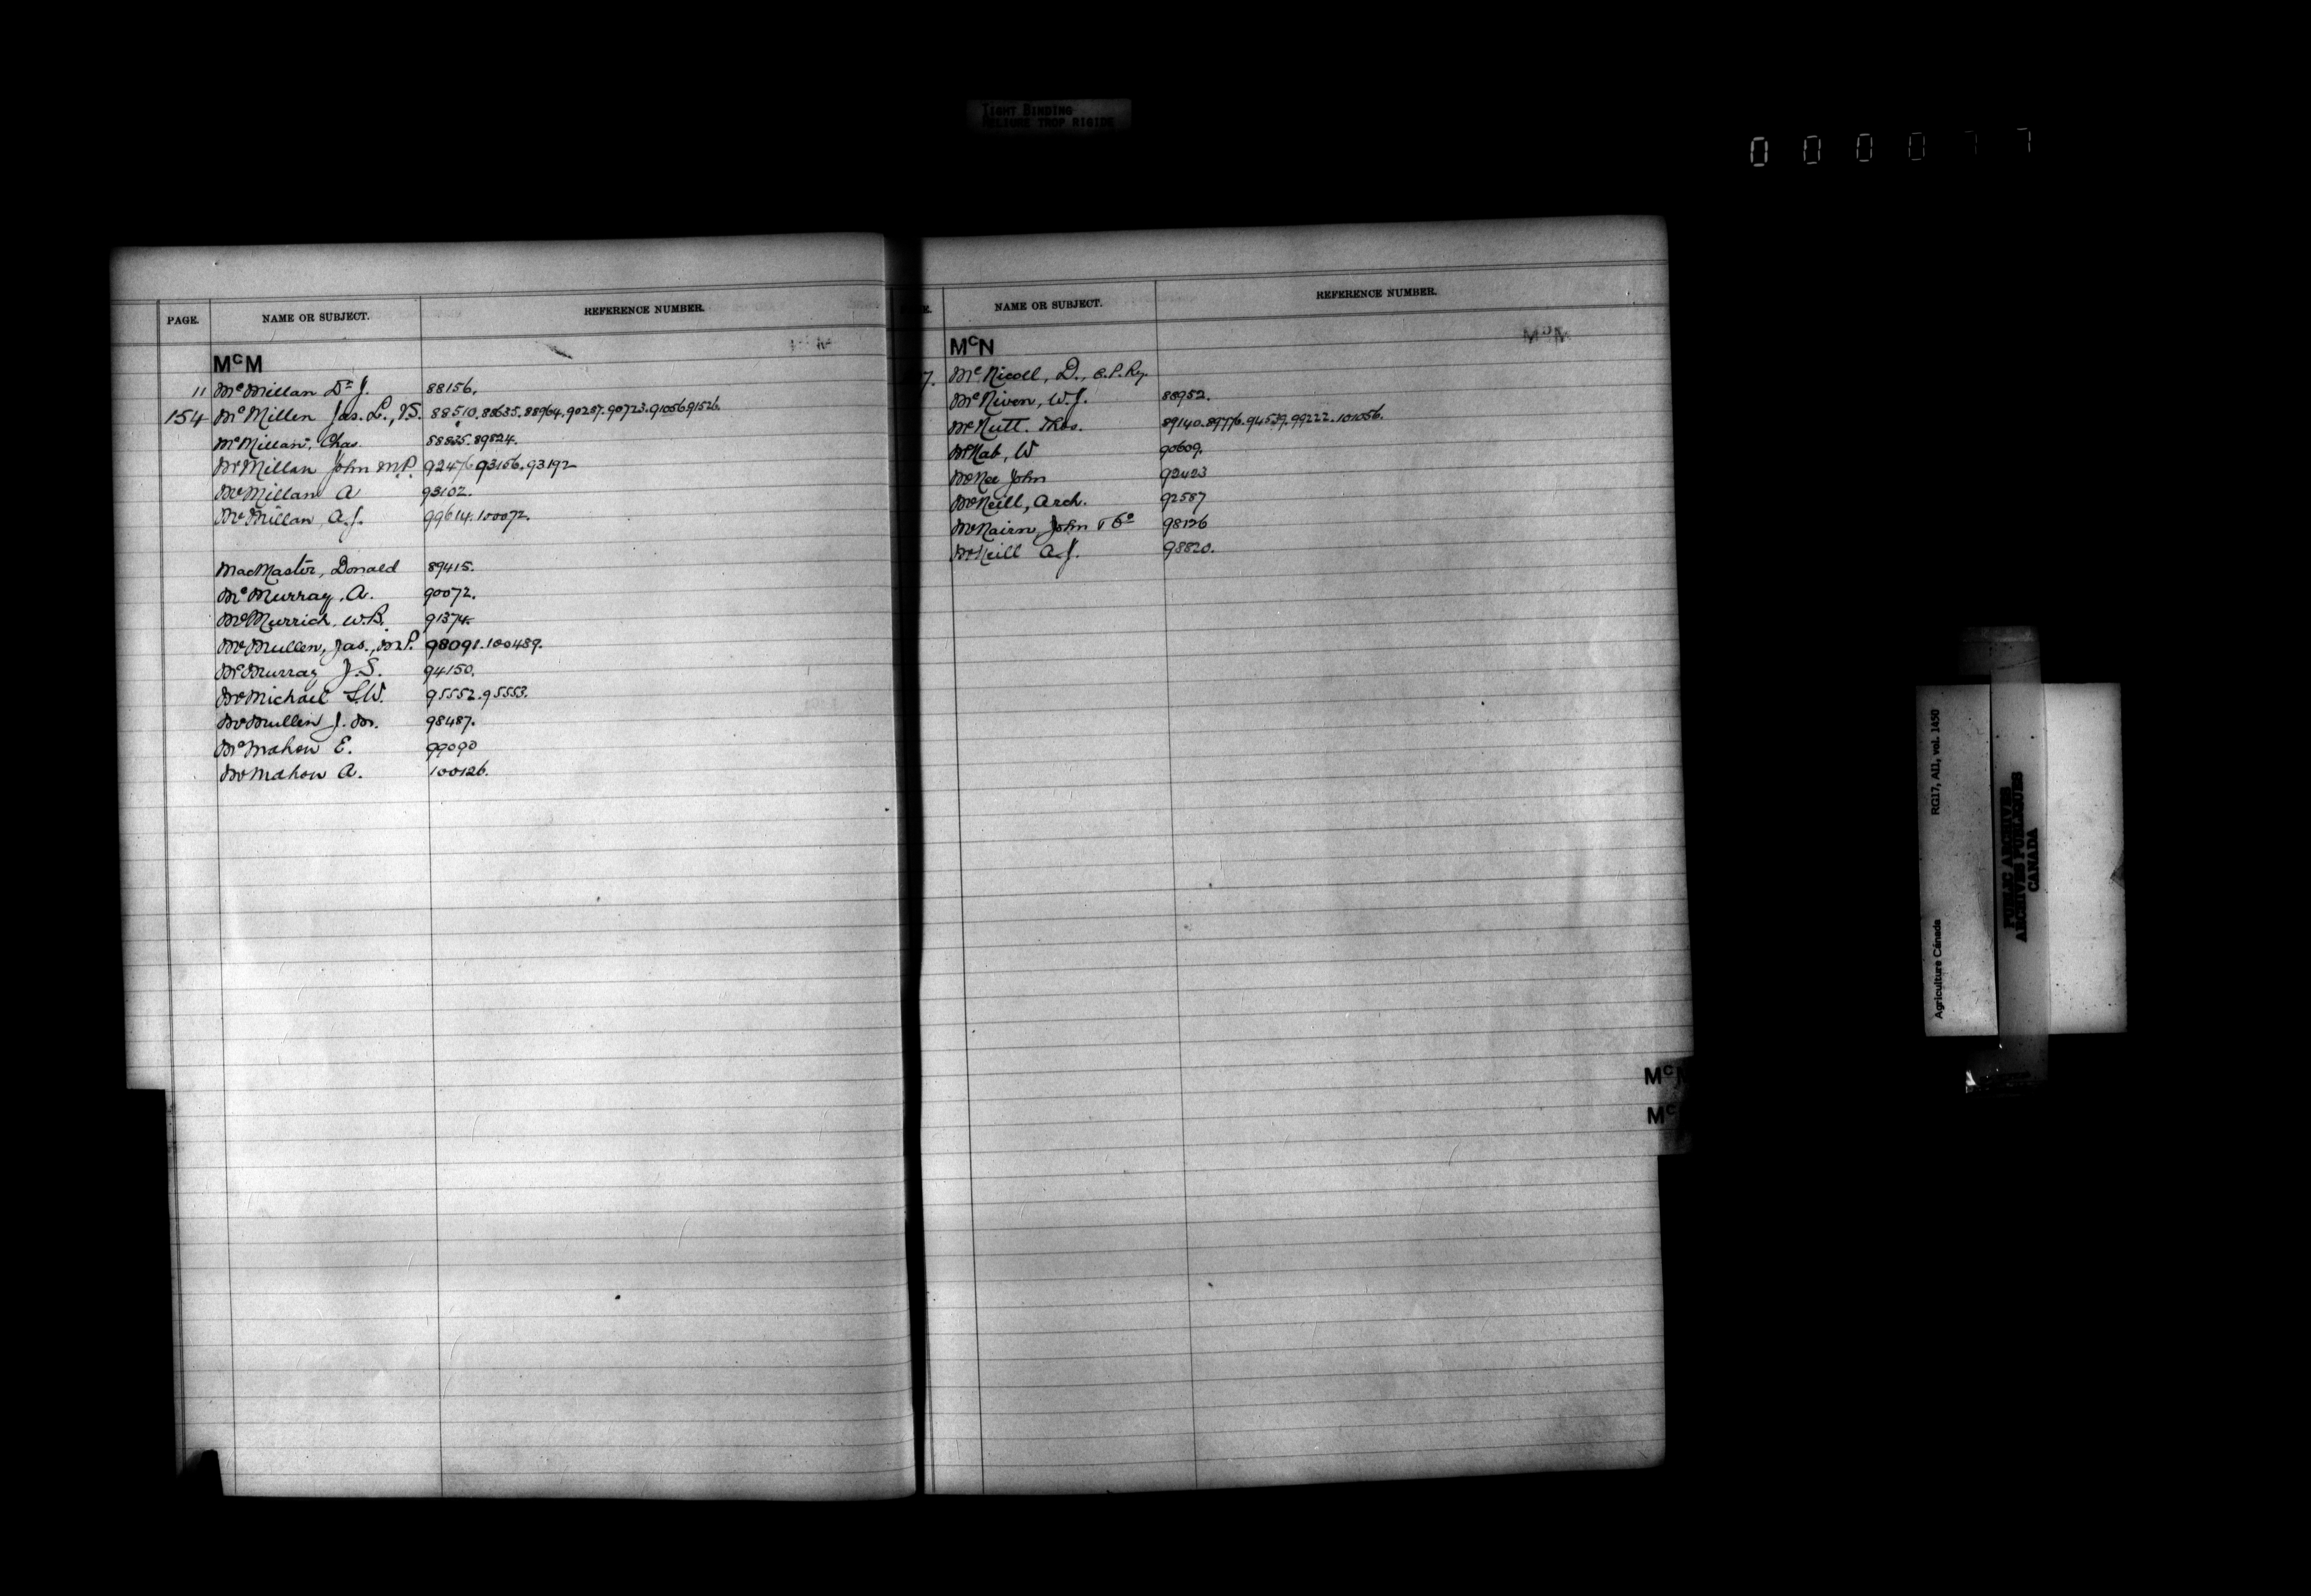 TIGHT BINDING
RELIURE TROP RIGIDE
0 0 0 0 7 7
PAGE. NAME OR SUBJECT. REFERENCE NUMBER.
McM
11 McMillan Dr J. 88156.
154 McMillen Jas. L., V.S. 88510.88635.88964.90287.90723.91056.91526.
McMillan, Chas. 88835.89824.
McMillan John M.P. 92476.93156.93192
McMillan A 93102.
McMillan, A.J. 99614.100072.
MacMaster, Donald 89415.
McMurray, A. 90072.
McMurrich, W.B. 91374.
McMullen, Jas., M.P. 98091.100489.
McMurray J.S. 94150.
McMichael S.W. 95552.95553.
McMullen J. M. 98487.
McMahon E. 99090
McMahon A. 100126.
NAME OR SUBJECT. REFERENCE NUMBER.
McN
7. McNicoll, D., C.P.Ry.
McNiven, W.J. 88952.
McNutt. Thos. 89140.89776.94539.99222.101056.
McNab, W 90609.
McNee John 92423
McNeill, Arch. 92587
McNairn, John & Co 98126
McNeill A.J. 98820.
McM
Mc
Agriculture Canada RG17, AI1, vol. 1450
PUBLIC ARCHIVES
ARCHIVES PUBLIQUES
CANADA